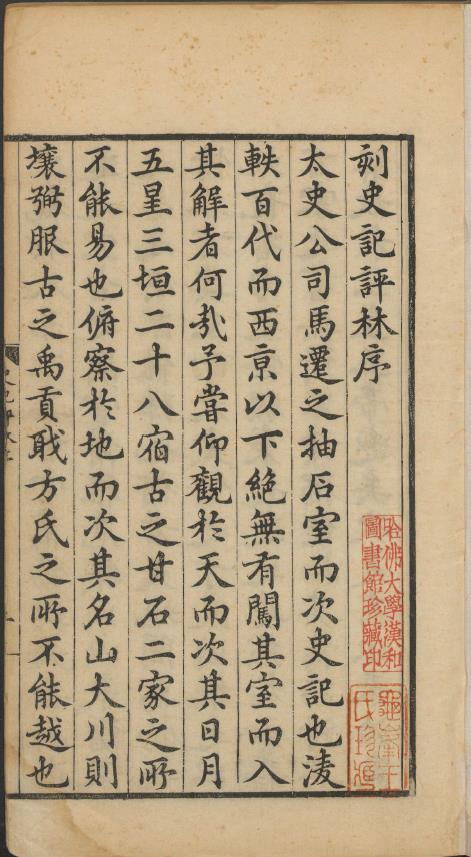 刻史記評林序
太史公司馬遷之抽石室而次史記也淩
軼百代而西亰以下絶無有闖其室而入
其解者何㢤予嘗仰觀於天而次其日月
五星三垣二十八宿古之甘石二家之所
不能易也俯察於地而次其名山大川則
壤弼服古之禹貢職方氏之所不能越也
哈佛大學漢和
圖書館珍藏印
氏珍